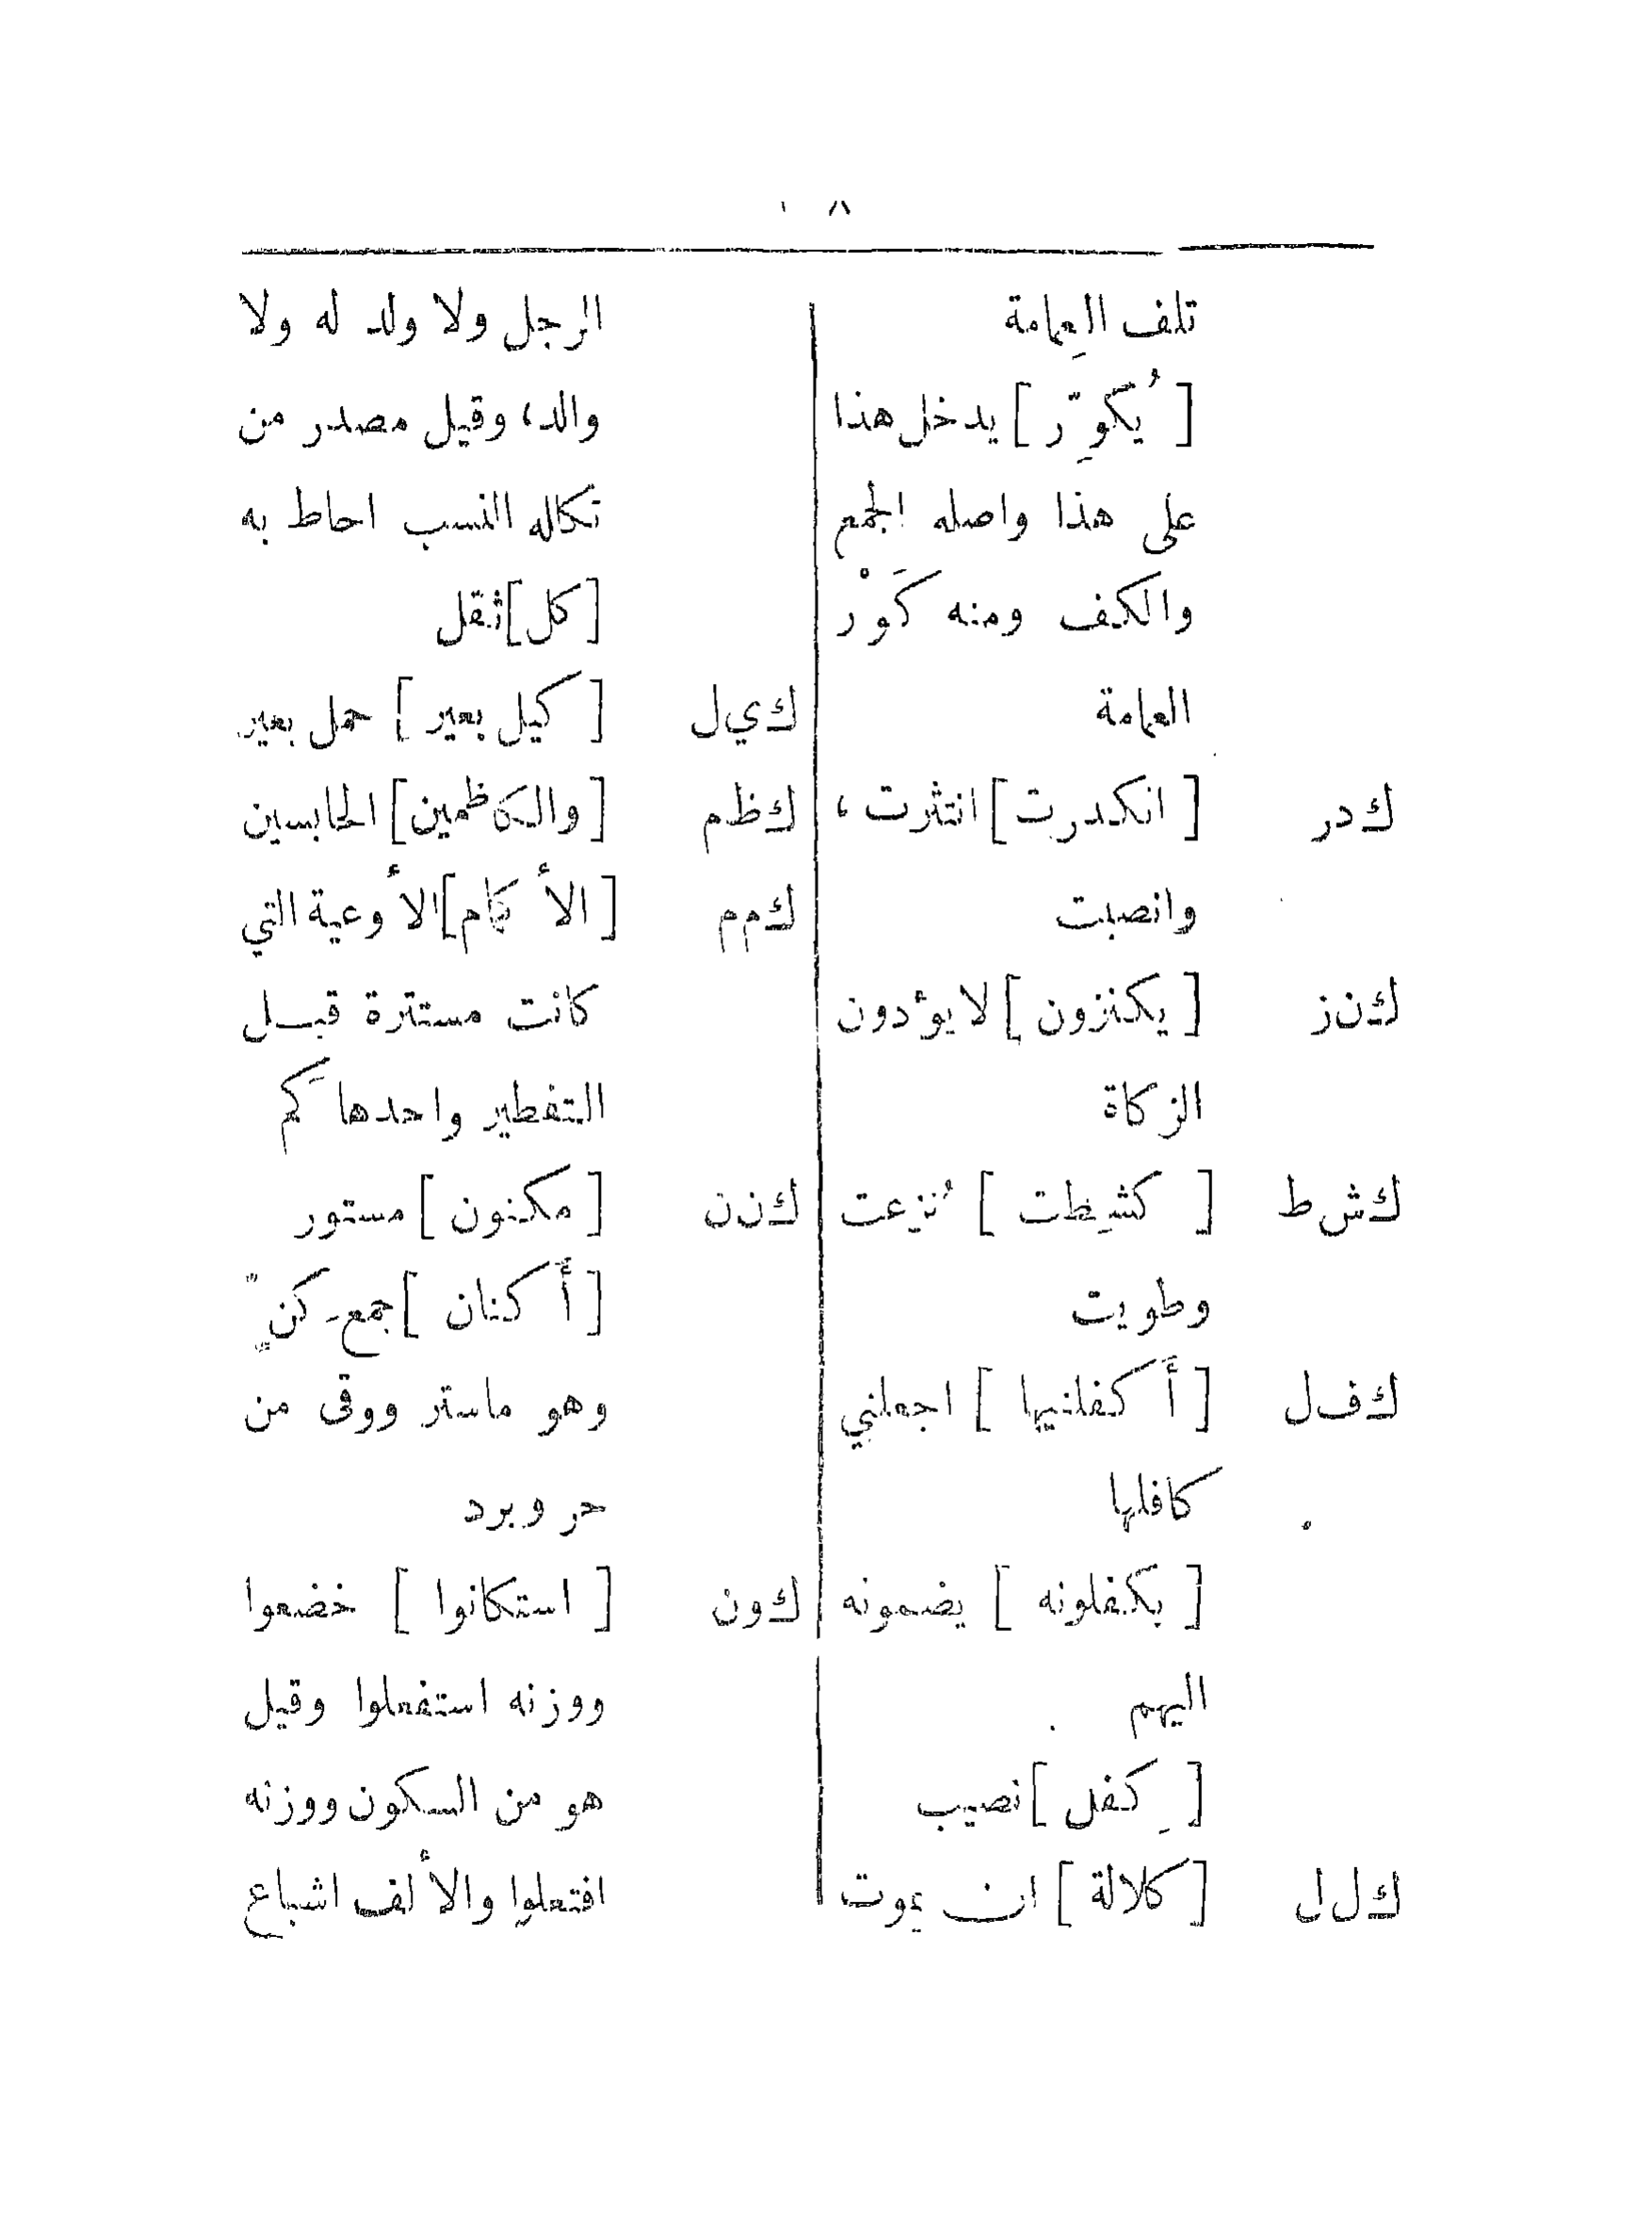 ١٠٨
تلف العِمامة
[يُكوِّر] يدخل هذا
على هذا واصله الجمع
والكف ومنه كَوْر
العمامة
ك د ر [انكدرت] انتثرت ،
وانصبت
ك ن ز [يكنزون] لا يؤدون
الزكاة
ك ش ط [كشِطت] نُزِعت
وطويت
ك ف ل [أكفلنيها] اجعلني
كافلها
[يكفلونه] يضمونه
اليهم
[كِفل] نصيب
ك ل ل [كلالة] ان يموت
الرجل ولا ولد له ولا
والد، وقيل مصدر من
تكلله النسب احاط به
[كل] ثقل
ك ي ل [كيل بعير] حمل بعير
ك ظ م [والكاظمين] الحابسين
ك م م [الأكمام] الأوعية التي
كانت مستترة قبل
التفطير واحدها كَم
ك ن ن [مكنون] مستور
[أكنان] جمع كنٍّ
وهو ماستر ووقى من
حر وبرد
ك و ن [استكانوا] خضعوا
ووزنه استفعلوا وقيل
هو من السكون ووزنه
افتعلوا والألف اشباع